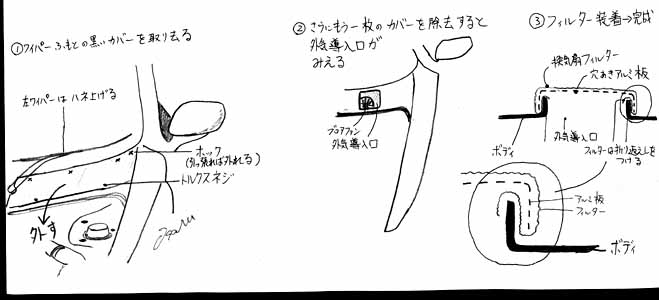 ①ワイパーふもとの黒いカバーを取り去る
左ワイパーは ハネ上げる
ホック
(引っ張れば外れる)
トルクスネジ
外す
② さらにもう一枚のカバーを除去すると
外気導入口が
みえる
ブロアファン
外気導入口
③ フィルター装着→完成
換気扇フィルター
穴あきアルミ板
ボディ
外気導入口
フィルターは折り返しを
つける
アルミ板
フィルター
ボディ